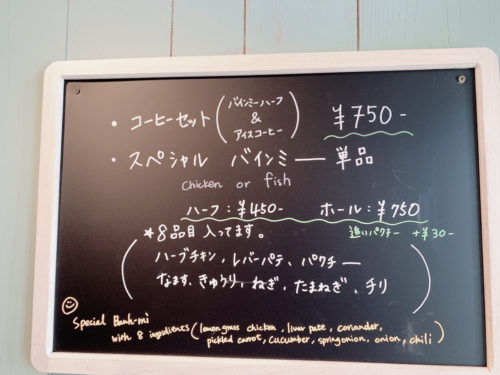 ・コーヒーセット(バインミーハーフ & アイスコーヒー) ¥750-
・スペシャル バインミー 単品
chicken or fish
ハーフ:¥450- ホール:¥750
追いパクチー +¥30-
*8品目 入ってます。
(ハーブチキン, レバーパテ、パクチー
なます、きゅうり、ねぎ、たまねぎ、チリ)
Special Banh-mi
with 8 ingredients (lemongrass chicken, liver pate, coriander,
pickled carrot, cucumber, springonion, onion, chili)